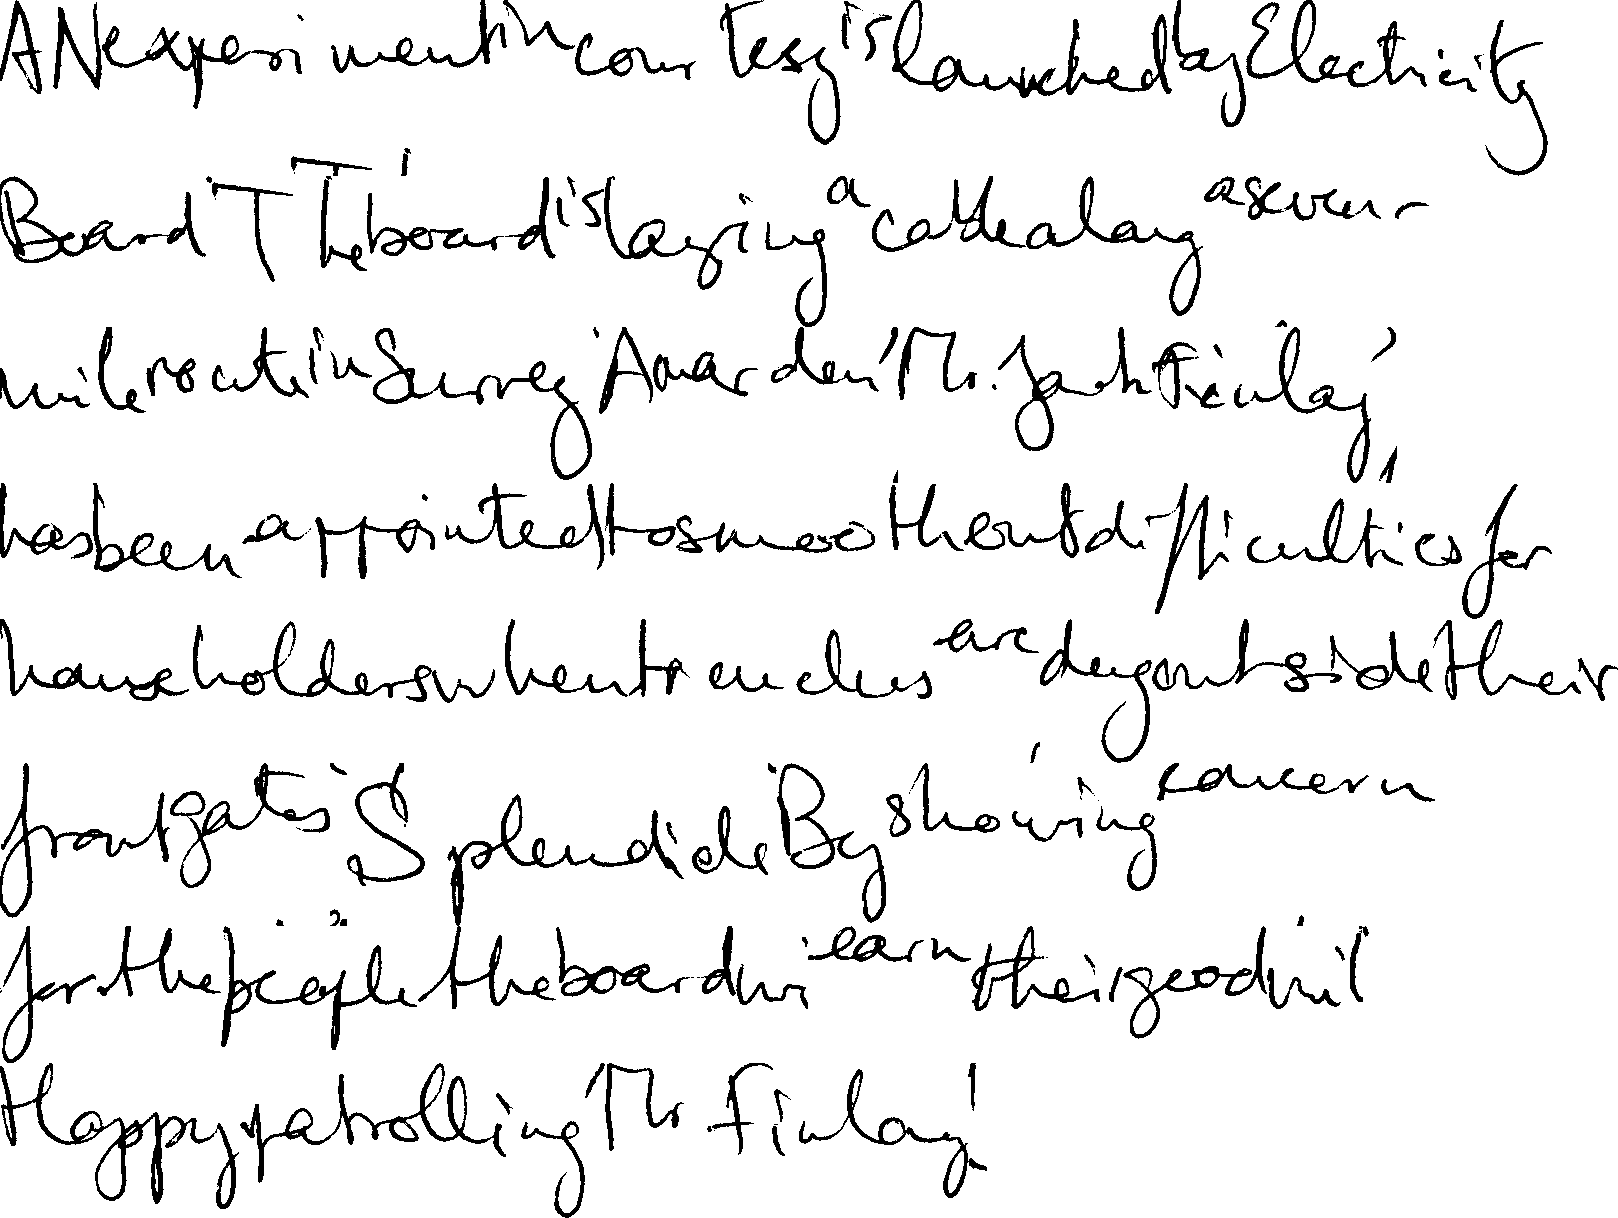 AN experiment in courtesy is launched by Electricity
Board T The board is laying a cable along a seven-
mile route in Surrey A warden, Mr. Jack Finlay,
has been appointed to smooth out difficulties for
householders when trenches are dug outside their
front gates Splendid. By showing concern
for the people the board wi earn their goodwil
Happy patrolling Mr. Finlay!